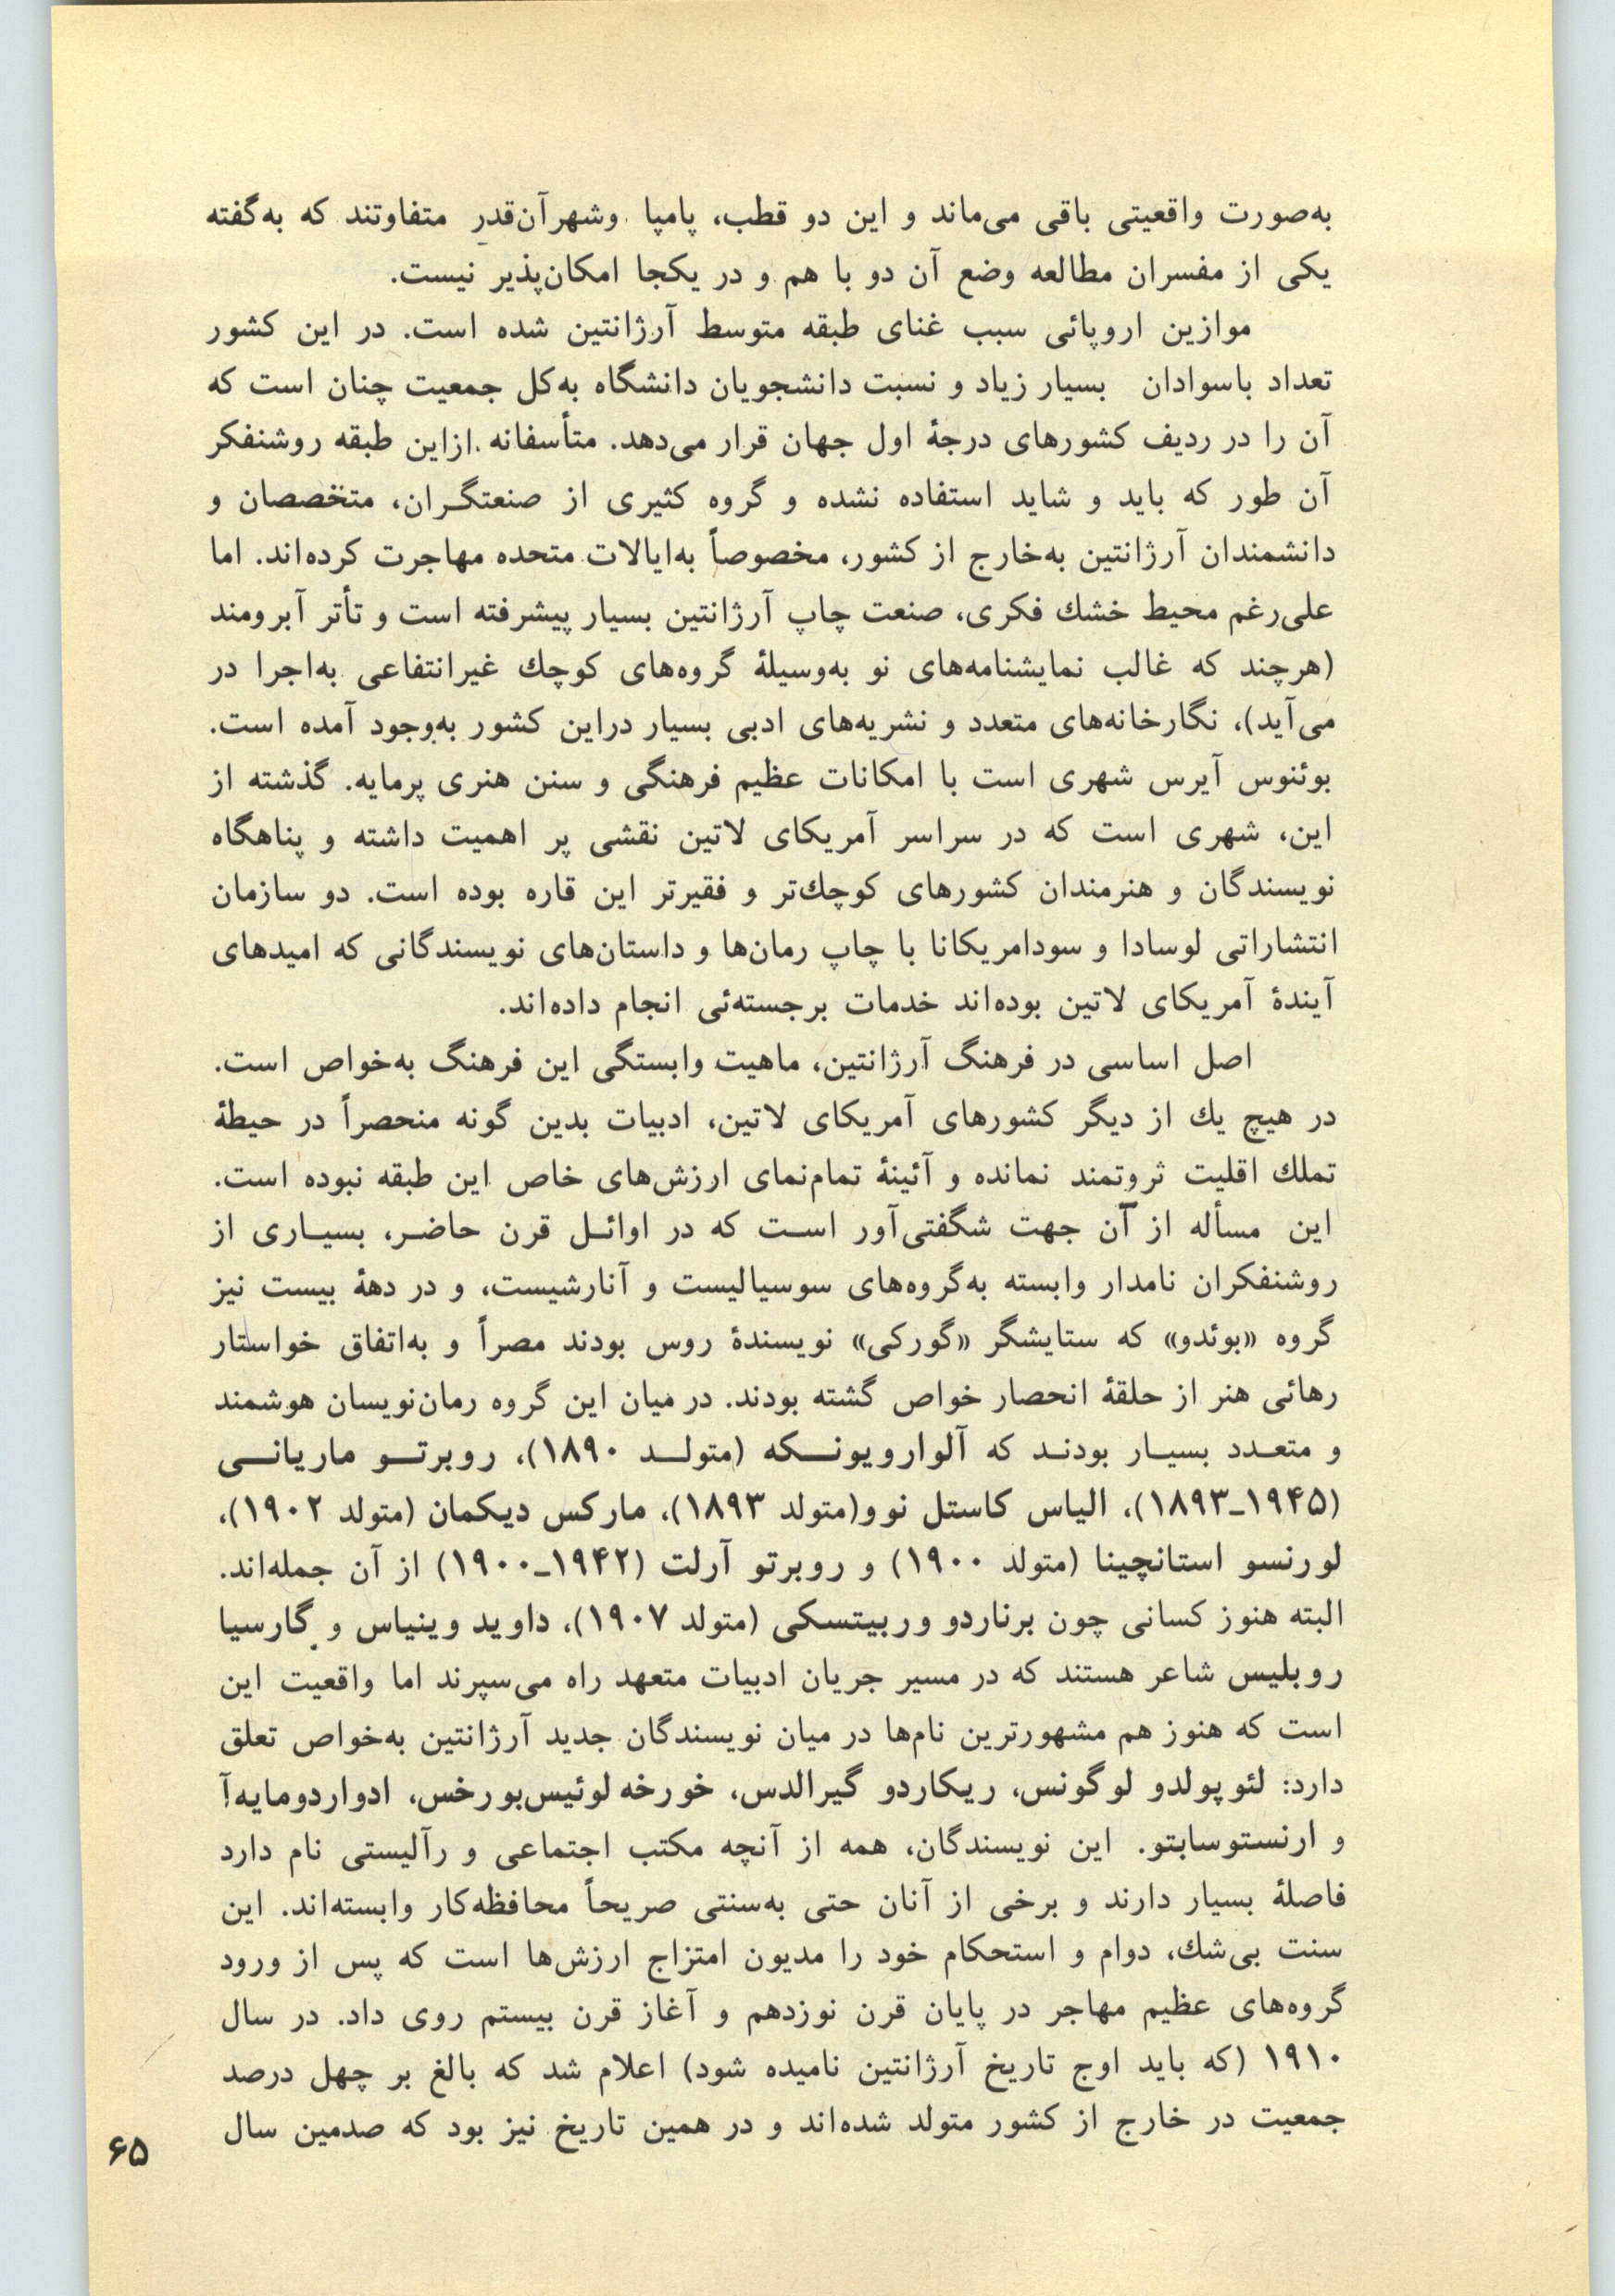 به‌صورت واقعیتی باقی می‌ماند و این دو قطب، پامپا وشهرآن‌قدر متفاوتند که به‌گفته
یکی از مفسران مطالعه وضع آن دو با هم و در یکجا امکان‌پذیر نیست.
موازین اروپائی سبب غنای طبقه متوسط آرژانتین شده است. در این کشور
تعداد باسوادان بسیار زیاد و نسبت دانشجویان دانشگاه به‌کل جمعیت چنان است که
آن را در ردیف کشورهای درجهٔ اول جهان قرار می‌دهد. متأسفانه ازاین طبقه روشنفکر
آن طور که باید و شاید استفاده نشده و گروه کثیری از صنعتگـران، متخصصان و
دانشمندان آرژانتین به‌خارج از کشور، مخصوصاً به‌ایالات متحده مهاجرت کرده‌اند. اما
علی‌رغم محیط خشك فکری، صنعت چاپ آرژانتین بسیار پیشرفته است و تأتر آبرومند
(هرچند که غالب نمایشنامه‌های نو به‌وسیلهٔ گروه‌های کوچك غیرانتفاعی به‌اجرا در
می‌آید)، نگارخانه‌های متعدد و نشریه‌های ادبی بسیار دراین کشور به‌وجود آمده است.
بوئنوس آیرس شهری است با امکانات عظیم فرهنگی و سنن هنری پرمایه. گذشته از
این، شهری است که در سراسر آمریکای لاتین نقشی پر اهمیت داشته و پناهگاه
نویسندگان و هنرمندان کشورهای کوچك‌تر و فقیرتر این قاره بوده است. دو سازمان
انتشاراتی لوسادا و سودامریکانا با چاپ رمان‌ها و داستان‌های نویسندگانی که امیدهای
آیندهٔ آمریکای لاتین بوده‌اند خدمات برجسته‌ئی انجام داده‌اند.
اصل اساسی در فرهنگ آرژانتین، ماهیت وابستگی این فرهنگ به‌خواص است.
در هیچ یك از دیگر کشورهای آمریکای لاتین، ادبیات بدین گونه منحصراً در حیطهٔ
تملك اقلیت ثروتمند نمانده و آئینهٔ تمام‌نمای ارزش‌های خاص این طبقه نبوده است.
این مسأله از آن جهت شگفتی‌آور اسـت که در اوائـل قرن حاضـر، بسیـاری از
روشنفکران نامدار وابسته به‌گروه‌های سوسیالیست و آنارشیست، و در دههٔ بیست نیز
گروه «بوئدو» که ستایشگر «گورکی» نویسندهٔ روس بودند مصراً و به‌اتفاق خواستار
رهائی هنر از حلقهٔ انحصار خواص گشته بودند. در میان این گروه رمان‌نویسان هوشمند
و متعـدد بسیـار بودنـد که آلوارویونـکه (متولـد ۱۸۹۰)، روبرتـو ماریانـی
(۱۹۴۵ـ۱۸۹۳)، الیاس کاستل نوو(متولد ۱۸۹۳)، مارکس دیکمان (متولد ۱۹۰۲)،
لورنسو استانچینا (متولد ۱۹۰۰) و روبرتو آرلت (۱۹۴۲ـ۱۹۰۰) از آن جمله‌اند.
البته هنوز کسانی چون برناردو وربیتسکی (متولد ۱۹۰۷)، داوید وینیاس و گارسیا
روبلیس شاعر هستند که در مسیر جریان ادبیات متعهد راه می‌سپرند اما واقعیت این
است که هنوز هم مشهورترین نام‌ها در میان نویسندگان جدید آرژانتین به‌خواص تعلق
دارد: لئوپولدو لوگونس، ریکاردو گیرالدس، خورخه لوئیس‌بورخس، ادواردومایه‌آ
و ارنستوسابتو. این نویسندگان، همه از آنچه مکتب اجتماعی و رآلیستی نام دارد
فاصلهٔ بسیار دارند و برخی از آنان حتی به‌سنتی صریحاً محافظه‌کار وابسته‌اند. این
سنت بی‌شك، دوام و استحکام خود را مدیون امتزاج ارزش‌ها است که پس از ورود
گروه‌های عظیم مهاجر در پایان قرن نوزدهم و آغاز قرن بیستم روی داد. در سال
۱۹۱۰ (که باید اوج تاریخ آرژانتین نامیده شود) اعلام شد که بالغ بر چهل درصد
جمعیت در خارج از کشور متولد شده‌اند و در همین تاریخ نیز بود که صدمین سال
۶۵